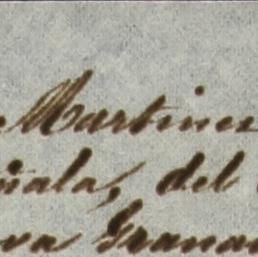 Martines
ñala, del
va Grana